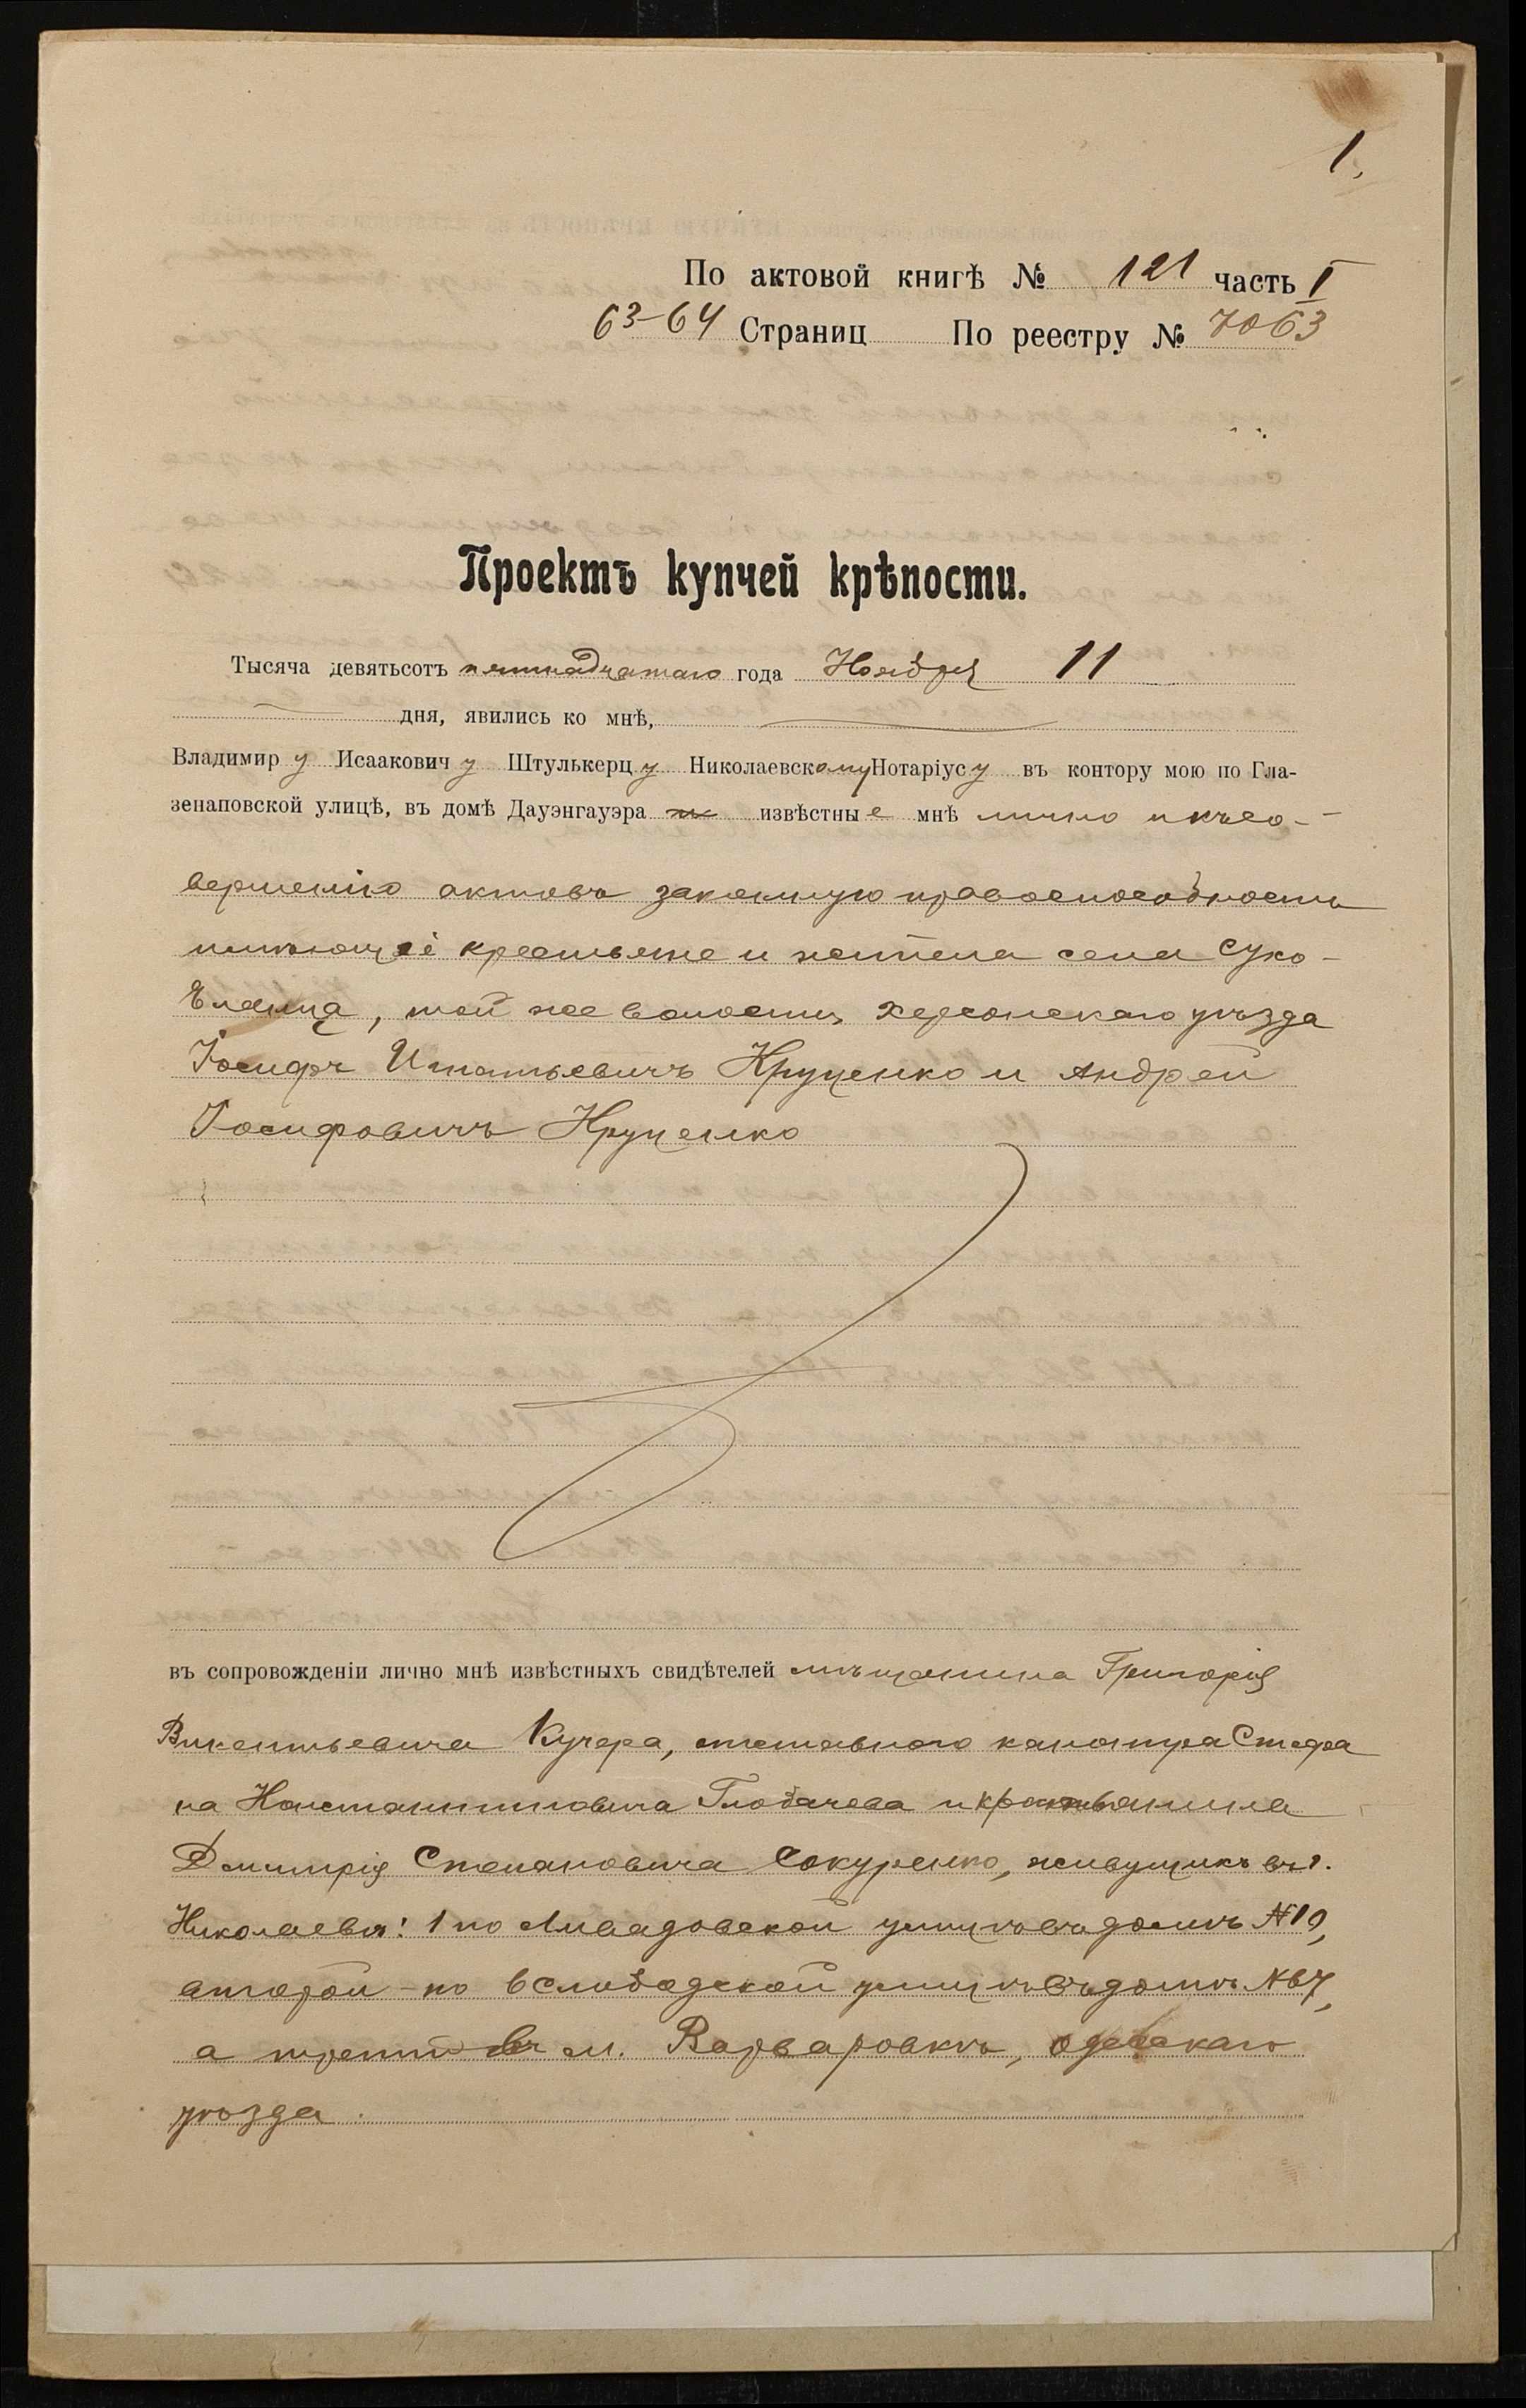 1.
По актовой книгѣ № 121 часть I
63-64 Страниц По реестру № 7063
Проектъ купчей крѣпости.
Тысяча девятьсотъ пятнадцатаго года Ноября 11
дня, явились ко мнѣ,
Владимир у Исаакович у Штулькерц у Николаевскому Нотаріус у въ контору мою по Гла-
зенаповской улицѣ, въ домѣ Дауэнгауэра извѣстны е мнѣ лично и къ со-
вершенію актовъ законную правоспособность
имѣющіе крестьяне и жители села Сухо-
Еланца, той же волости, Херсонскаго уѣзда
Іосифъ Игнатьевичъ Круценко и Андрей
Іосифовичъ Круценко
въ сопровожденіи лично мнѣ извѣстныхъ свидѣтелей мѣщанина Григорія
Викентьевича Кучера, отставного канонира Стефа
на Константиновича Глобачева и крестьянина
Димитрія Степановича Сокуренко, живущихъ въ г.
Николаевѣ: 1 по улицѣ въ домѣ № 19,
второй - по 6 Слободской улицѣ въ домѣ № 67,
а третій въ м. Варваровкѣ, Одесскаго
уѣзда.